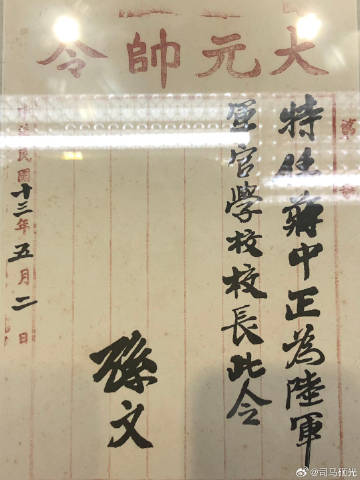 大元帥令
特任蔣中正為陸軍
軍官學校校長此令
孫文
中華民國十三年五月二日
@司马顽光